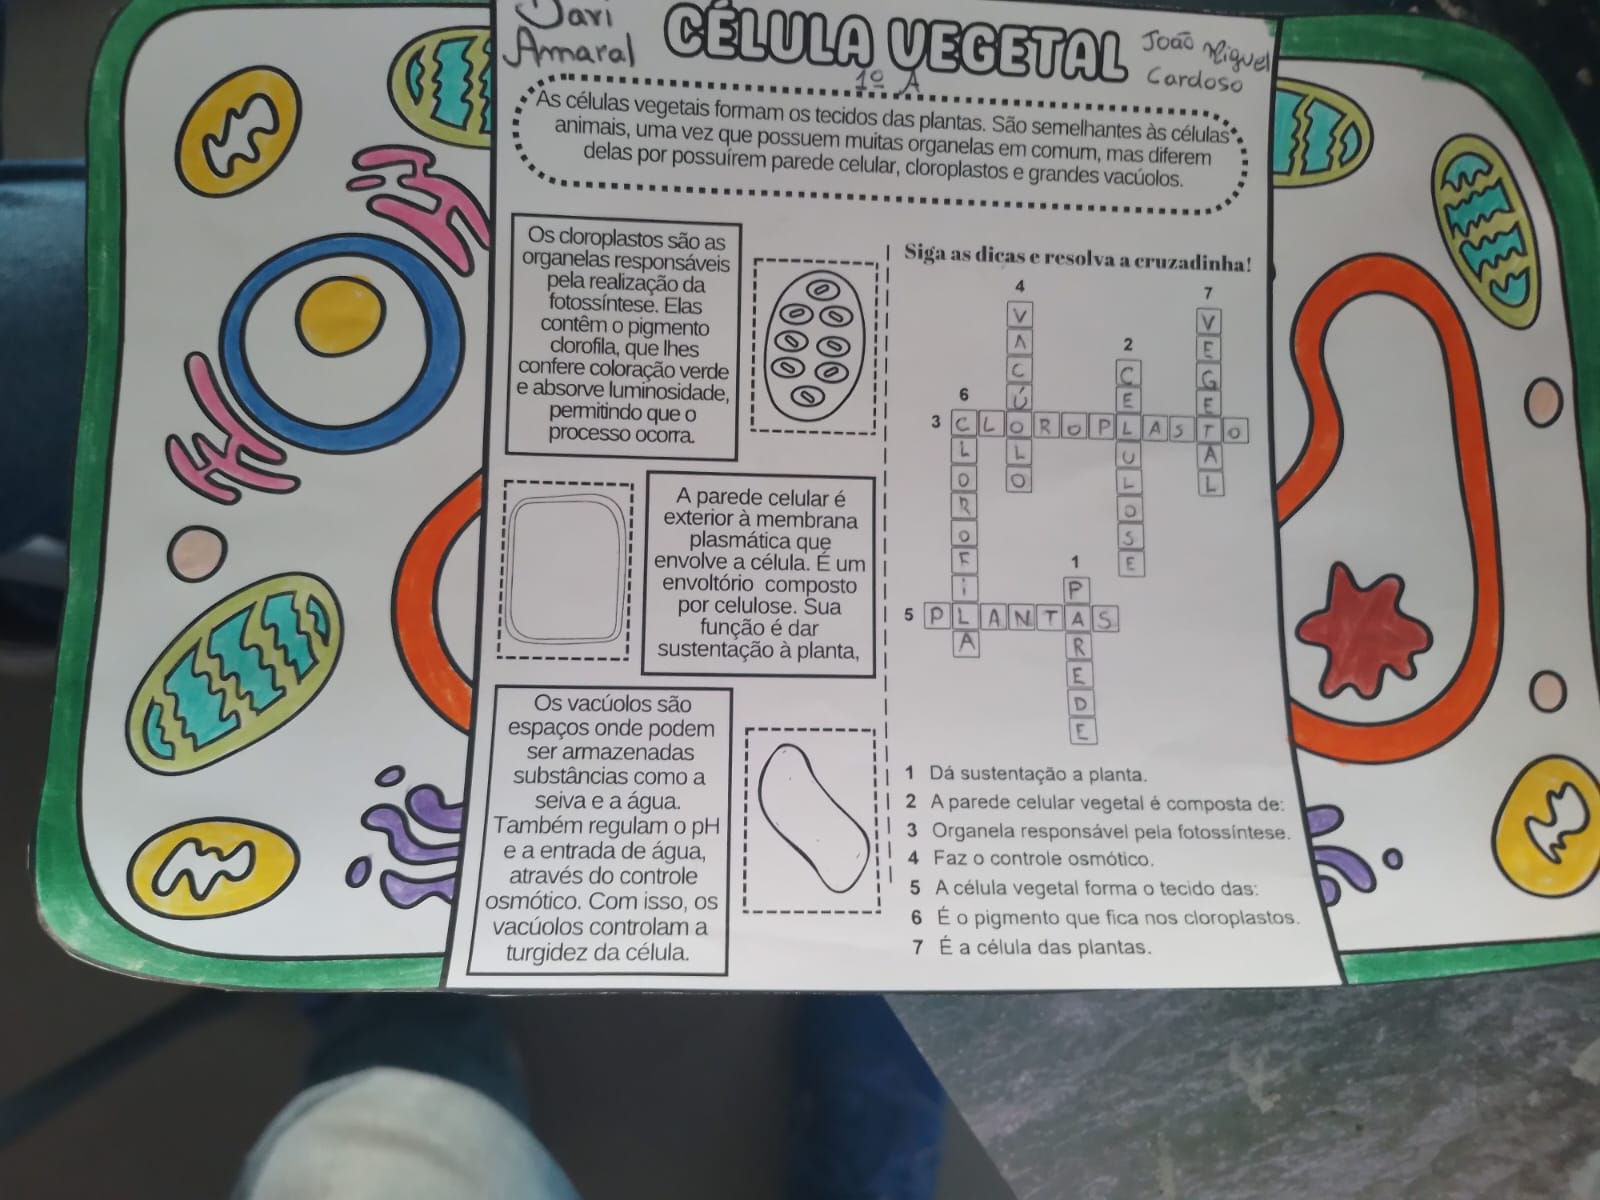 Davi
Amaral
CÉLULA VEGETAL
João Miguel
Cardoso
1º A
As células vegetais formam os tecidos das plantas. São semelhantes às células
animais, uma vez que possuem muitas organelas em comum, mas diferem
delas por possuírem parede celular, cloroplastos e grandes vacúolos.
Os cloroplastos são as
organelas responsáveis
pela realização da
fotossíntese. Elas
contêm o pigmento
clorofila, que lhes
confere coloração verde
e absorve luminosidade,
permitindo que o
processo ocorra.
A parede celular é
exterior à membrana
plasmática que
envolve a célula. É um
envoltório composto
por celulose. Sua
função é dar
sustentação à planta,
Os vacúolos são
espaços onde podem
ser armazenadas
substâncias como a
seiva e a água.
Também regulam o pH
e a entrada de água,
através do controle
osmótico. Com isso, os
vacúolos controlam a
turgidez da célula.
Siga as dicas e resolva a cruzadinha!
4 VACÚOLO
7 VEGETAL
2 CELULOSE
6 CLOROFILA
3 CLOROPLASTO
1 PAREDE
5 PLANTAS
1 Dá sustentação a planta.
2 A parede celular vegetal é composta de:
3 Organela responsável pela fotossíntese.
4 Faz o controle osmótico.
5 A célula vegetal forma o tecido das:
6 É o pigmento que fica nos cloroplastos.
7 É a célula das plantas.